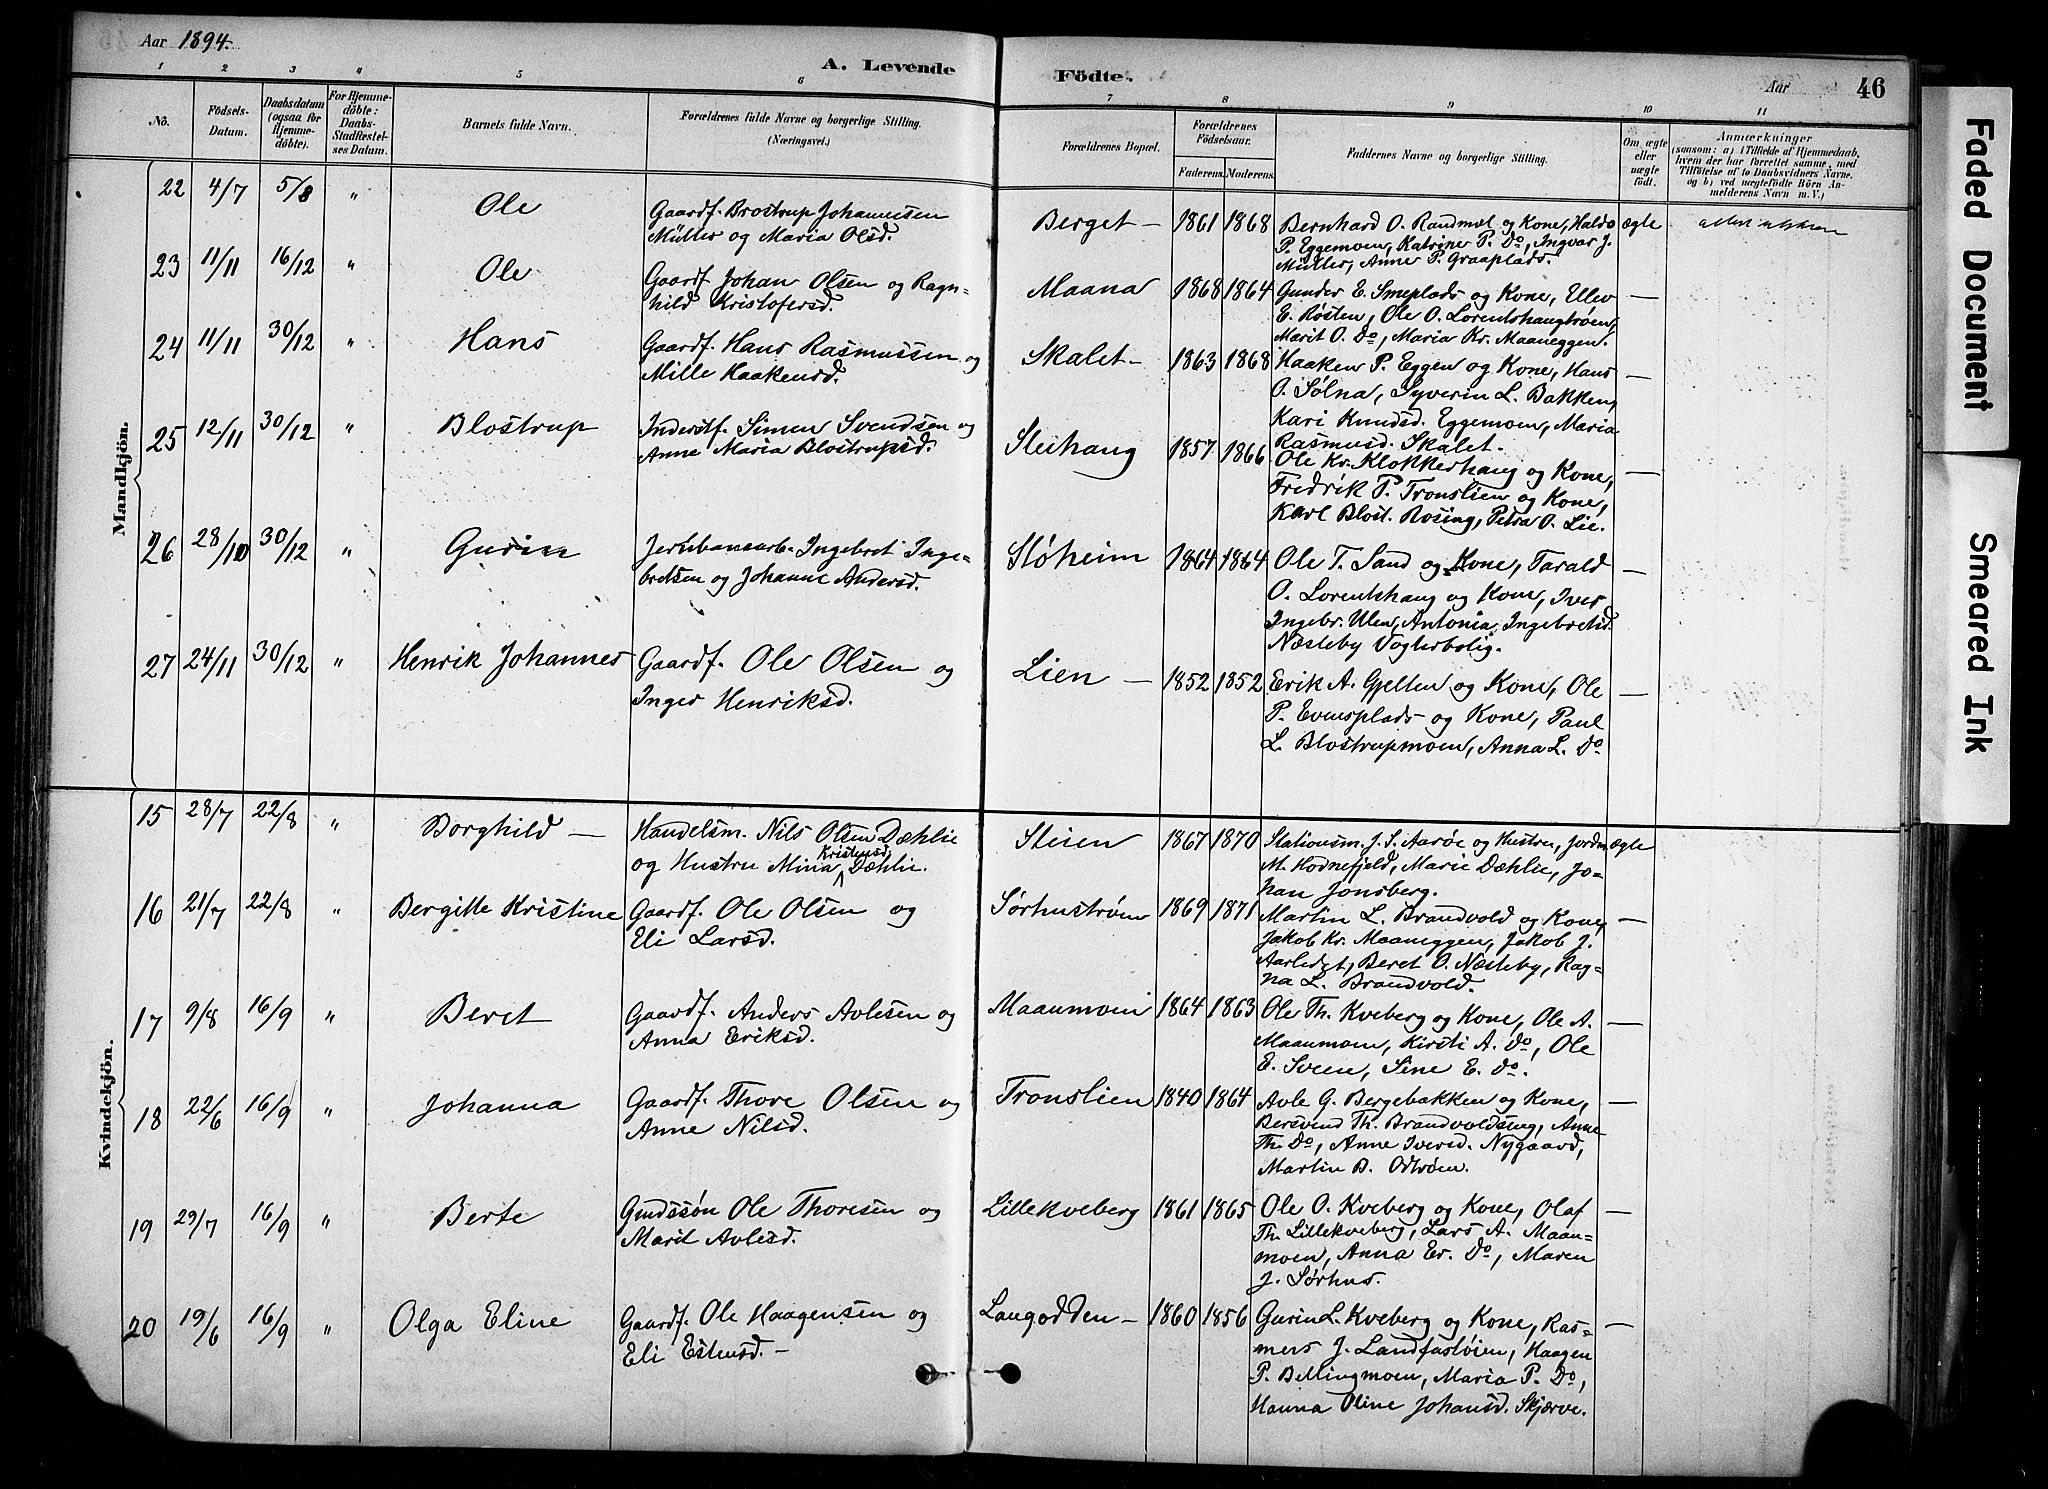 Aar 1894.
A. Levende Födte.
Aar 46
1 2 3 " 5 6 7 8 9 10 11
No. Födsels-Datum. Daabsdatum (ogsaa for Hjemmedöbte). For Hjemmedöbte: Daabs-Stadfæstelses Datum. Barnets fulde Navn. Forældrenes fulde Navne og borgerlige Stilling. (Næringsvei.) Forældrenes Bopæl. Forældrenes Födselsaar. Faderens. Moderens. Faddernes Navne og borgerlige Stilling. Om ægte eller uægte födt. Anmærkninger (saasom: a) i Tilfælde af Hjemmedaab, hvem der har forrettet samme, med Tilföielse af to Daabsvidners Navne, og b) ved uægtefödte Börn Anmelderens Navn m. V.)
Mandkjön.
22 4/7 5/8 " Ole Gaardf. Brostrup Johannesen Berget - 1861 1868 Bernhard O. Randmæl og Kone, Haldo ægte
Müller og Maria Olsd. P. Eggemoen, Katrine P. Do, Ingvar J.
Müller, Anne P. Graaplads.
23 11/11 16/12 " Ole Gaardf. Johan Olsen og Ragn- Maana 1868 1864 Gunder E. Smeplads og Kone, Ellev —
hild Kristofersd. E. Røsten, Ole O. Lorentshaugtrøen,
Marit O. Do, Maria Kr. Maaneggen.
24 11/11 30/12 " Hans Gaardf. Hans Rasmussen og Skalet - 1863 1868 Haaken P. Eggen og Kone, Hans —
Mille Haakensd. O. Sølna, Syverin L. Bakken,
Kari Knudsd. Eggemoen, Maria
Rasmusd. Skalet.
25 12/11 30/12 " Blostrup Inderstf. Simen Svendsen og Steihaug 1857 1866 Ole Kr. Klokkerhaug og Kone, —
Anne Maria Blostrupsd. Fredrik P. Tronslien og Kone,
Karl Blost. Rosing, Petra O. Lie.
26 28/10 30/12 " Gurin Jernbanearb. Ingebret Inge- Støheim 1864 1864 Ole T. Sand og Kone, Tarald —
bretsen og Johanne Andersd. O. Lorentshaug og Kone, Iver
Ingebr. Ulen, Antonia Ingebretsd.
Næsteby Vogterbolig.
27 24/11 30/12 " Henrik Johannes Gaardf. Ole Olsen og Lien — 1852 1852 Erik A. Gjelten og Kone, Ole —
Inger Henriksd. P. Evensplads og Kone, Paul
L. Blostrupmoen, Anna L. Do
Kvindekjön.
15 28/7 22/8 " Borghild — Handelsm. Nils Olsen Dæhlie Steien 1867 1870 Stationsm. J. S. Aarøe og Hustru, Jordm. ægte
og Hustru Mina Kristensd. Dæhlie. M. Hodnefjeld, Marie Dæhlie, Jo-
han Jonsberg.
16 21/7 22/8 " Bergitte Kristine Gaardf. Ole Olsen og Sørhustrøen 1869 1871 Martin L. Brandvold og Kone, —
Eli Larsd. Jakob Kr. Maaneggen, Jakob J.
Aarledet, Beret O. Næsteby, Rag-
na L. Brandvold.
17 9/8 16/9 " Beret Gaardf. Anders Avlesen og Maanmoen 1864 1863 Ole Th. Kveberg og Kone, Ole A. —
Anna Eriksd. Maanmoen, Kirsti A. Do, Ole
E. Sveen, Sine E. Do.
18 22/6 16/9 " Johanna Gaardf. Thore Olsen og Tronslien 1840 1864 Avle G. Bergebakken og Kone, —
Anne Nilsd. Bersvend Th. Brandvoldseng, Anne
Th. Do, Anne Iversd. Nygaard,
Martin B. Odtrøen.
19 29/7 16/9 " Berte Gmdssøn Ole Thoresen og Lillekveberg 1861 1865 Ole O. Kveberg og Kone, Olaf —
Marit Avlesd. Th. Lillekveberg, Lars A. Maan-
moen, Anna Er. Do, Maren
J. Sørhus.
20 19/6 16/9 " Olga Eline Gaardf. Ole Haagensen og Langodden - 1860 1856 Gurin L. Kveberg og Kone, Ras- —
Eli Estensd. — mus J. Landfastøien, Haagen
P. Bellingmoen, Maria P. Do,
Hanna Oline Johansd. Skjærve.
Faded Document
Smeared Ink